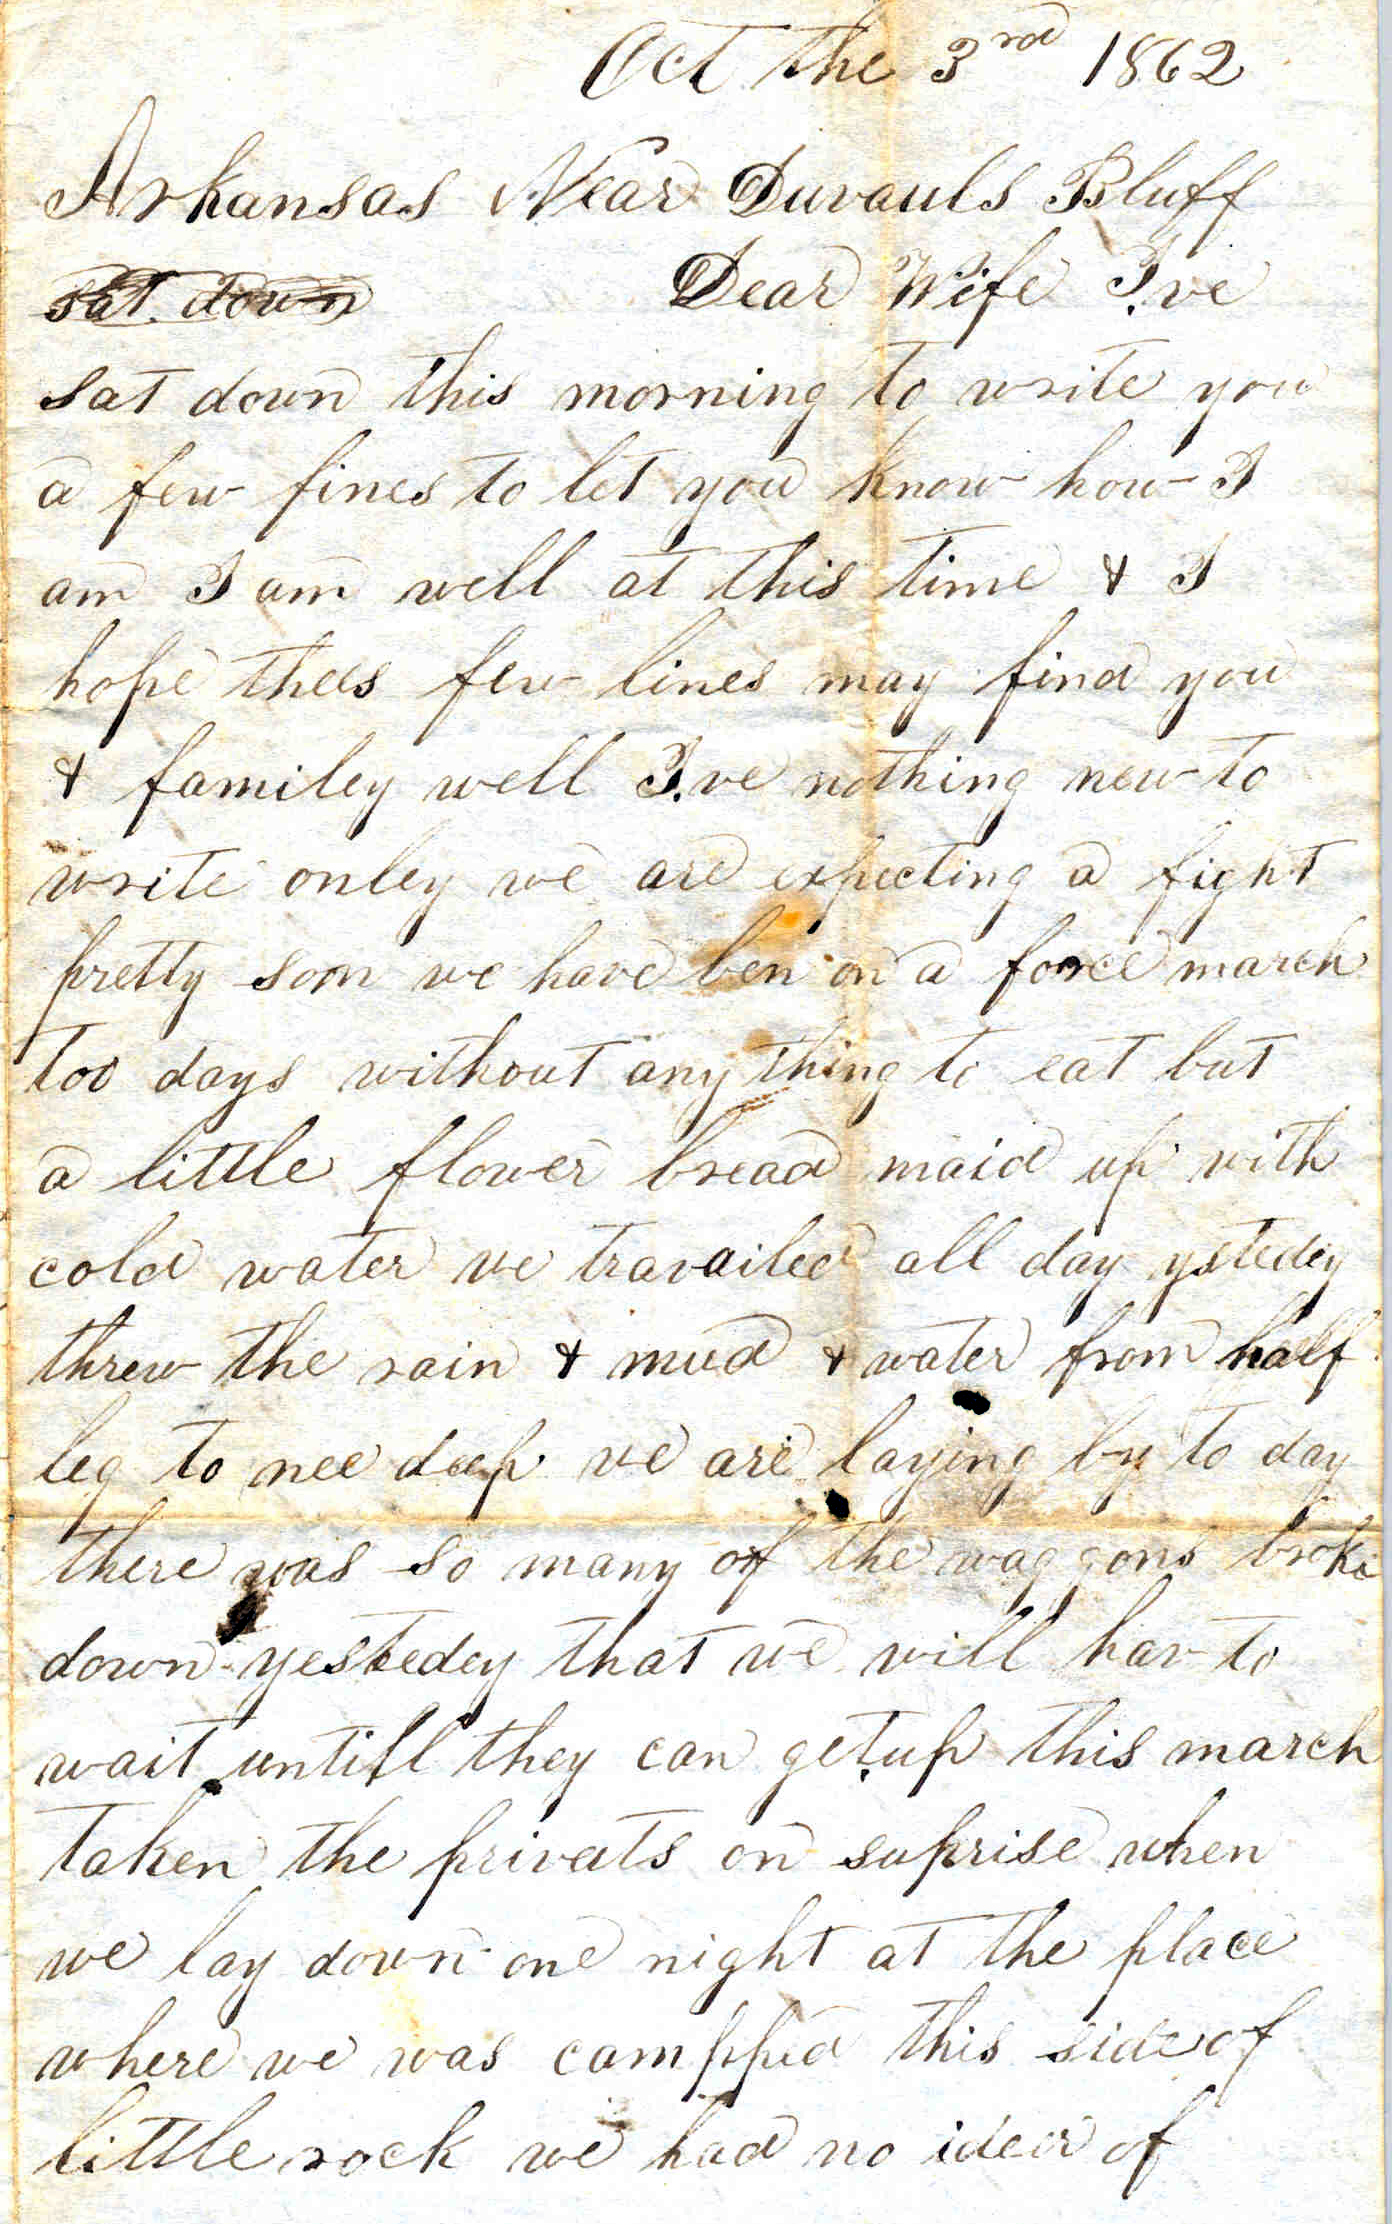 Oct the 3rd 1862
Arkansas Near Duvauls Bluff
sat down Dear Wife I.ve
sat down this morning to write you
a few fines to let you know how I
am I am well at this time & I
hope thees few lines may find you
& familey well I.ve nothing new to
write onley we are expecting a fight
pretty soon we have ben on a force march
too days without any thing to eat but
a little flower bread maid up with
cold water we travailed all day ystedey
threw the rain & mud & water from half
leg to nee deep we are laying by to day
there was so many of the waggons broke
down yestedey that we will hav to
wait untill they can get up this march
taken the privats on suprise when
we lay down one night at the place
where we was campped this side of
little rock we had no idear of